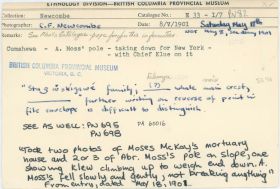 ETHNOLOGY DIVISION - BRITISH COLUMBIA PROVINCIAL MUSEUM
Collection: Newcombe
Catalogue No.
Photographer: C.F. Newcombe
Date: 8/V/1901 Saturday May
Comahewa - A. Moss' pole - taking down for New York -
- with Chief Klue on it
BRITISH COLUMBIA PROVINCIAL MUSEUM
VICTORIA, B.C.
family; (?) whale main crest,
further writing on reverse of print in
file envelope is difficult to distinguish.
SEE AS WELL: PN 695
PN 698
PA 60016
Took two photos of Moses McKay's mortuary
house and 2 or 3 of Abr. Moss's pole on slope, one
showing Klew climbing up to weigh end down. A.
Moss's fell slowly and gently, not breaking anything
From entry dated May 18, 1901.